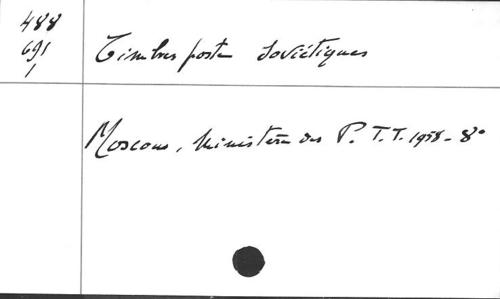 488
691
1
Timbres poste Soviétiques
Moscou, Ministère des P.T.T. 1958 - 8°